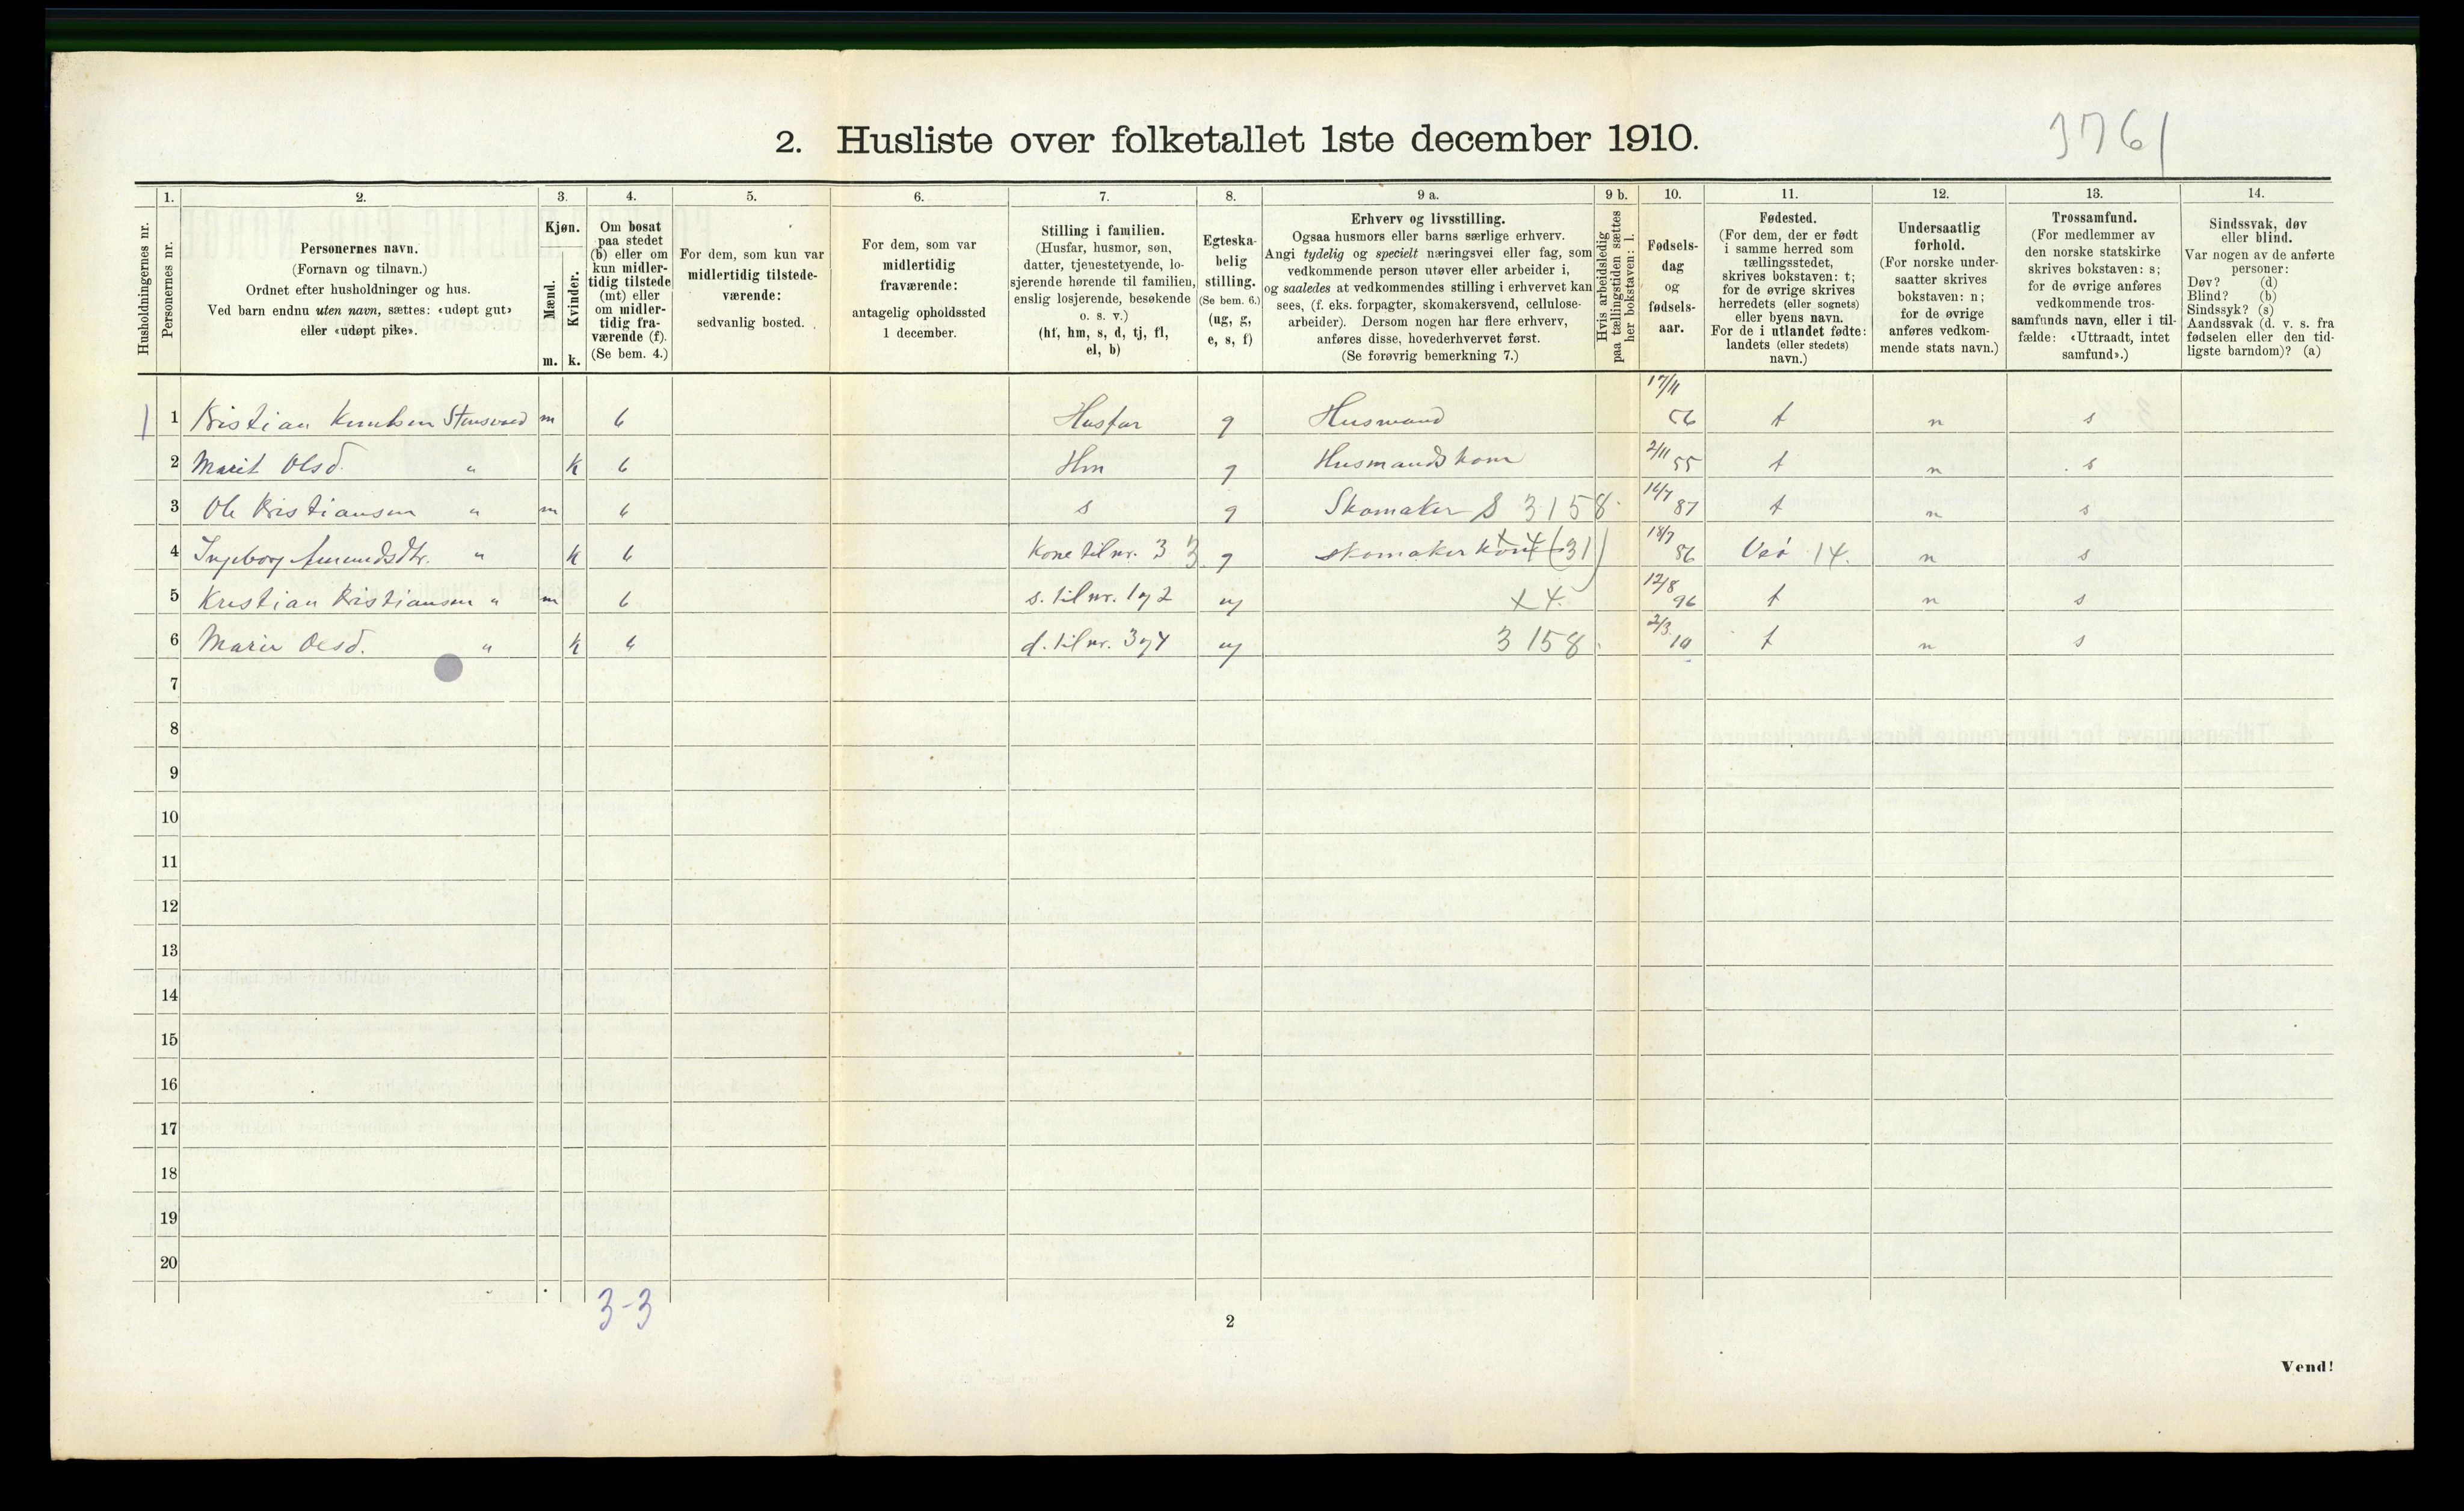 3761
2. Husliste over folketallet 1ste december 1910.
Husholdningernes nr.
1.
Personernes nr.
2.
Personernes navn.
(Fornavn og tilnavn.)
Ordnet efter husholdninger og hus.
Ved barn endnu uten navn, sættes: «udøpt gut»
eller «udøpt pike».
3.
Kjøn.
Mænd.
Kvinder.
m. k.
4.
Om bosat
paa stedet
(b) eller om
kun midler-
tidig tilstede
(mt) eller
om midler-
tidig fra-
værende (f).
(Se bem. 4.)
5.
For dem, som kun var
midlertidig tilstede-
værende:
sedvanlig bosted.
6.
For dem, som var
midlertidig
fraværende:
antagelig opholdssted
1 december.
7.
Stilling i familien.
(Husfar, husmor, søn,
datter, tjenestetyende, lo-
sjerende hørende til familien,
enslig losjerende, besøkende
o. s. v.)
(hf, hm, s, d, tj, fl,
el, b)
8.
Egteska-
belig
stilling.
(Se bem. 6.)
(ug, g,
e, s, f)
9 a.
Erhverv og livsstilling.
Ogsaa husmors eller barns særlige erhverv.
Angi tydelig og specielt næringsvei eller fag, som
vedkommende person utøver eller arbeider i,
og saaledes at vedkommendes stilling i erhvervet kan
sees, (f. eks. forpagter, skomakersvend, cellulose-
arbeider). Dersom nogen har flere erhverv,
anføres disse, hovederhvervet først.
(Se forøvrig bemerkning 7.)
9 b.
Hvis arbeidsledig
paa tællingstiden sættes
her bokstaven: l.
10.
Fødsels-
dag
og
fødsels-
aar.
11.
Fødested.
(For dem, der er født
i samme herred som
tællingsstedet,
skrives bokstaven: t;
for de øvrige skrives
herredets (eller sognets)
eller byens navn.
For de i utlandet fødte:
landets (eller stedets)
navn.)
12.
Undersaatlig
forhold.
(For norske under-
saatter skrives
bokstaven: n;
for de øvrige
anføres vedkom-
mende stats navn.)
13.
Trossamfund.
(For medlemmer av
den norske statskirke
skrives bokstaven: s;
for de øvrige anføres
vedkommende tros-
samfunds navn, eller i til-
fælde: «Uttraadt, intet
samfund».)
14.
Sindssvak, døv
eller blind.
Var nogen av de anførte
personer:
Døv? (d)
Blind? (b)
Sindssyk? (s)
Aandssvak (d. v. s. fra
fødselen eller den tid-
ligste barndom)? (a)
1 1 Kristian Knudsen m b Husfar g Husmand 17/11 56 t n s
2 Marit Olsd. " k b Hm g Husmandskone 2/11 55 t n s
3 Ole Kristiansen " m b s g Skomaker S 3158 87 t n s
4 Ingeborg Amundsdtr. " k b Kone til nr. 3 3 g skomakerkone (31) 18/7 86 Veø 14. n s
5 Kristian Kristiansen " m b s. til nr. 1 og 2 ug x 4. 12/8 96 t n s
6 Marie Olsd. " k b d. til nr. 3 og 4 ug 3158 2/3 10 t n s
7
8
9
10
11
12
13
14
15
16
17
18
19
20
3-3
2
Vend!